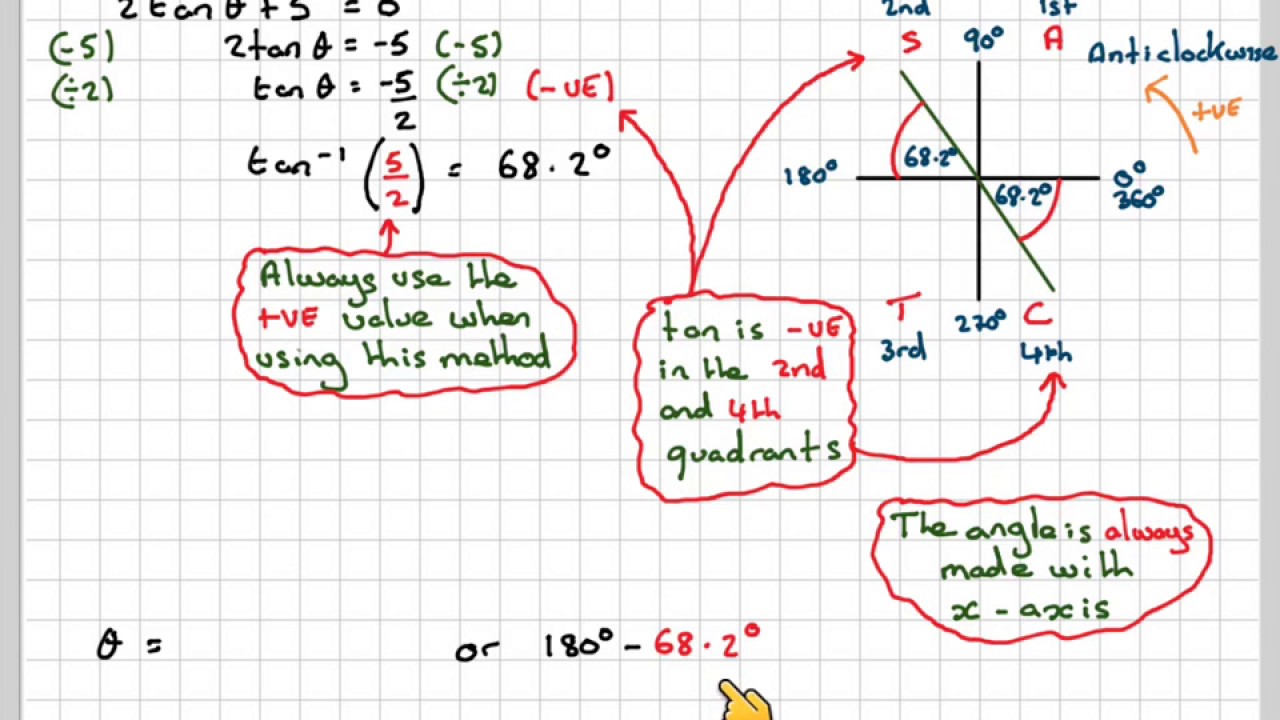 2 tan θ + 5 = 0
(-5) 2tan θ = -5 (-5)
(÷2) tan θ = -5/2 (÷2) (-VE)
tan⁻¹ (5/2) = 68.2°
Always use the
+VE value when
using this method
tan is -VE
in the 2nd
and 4th
quadrants
2nd 1st
S 90° A
Anticlockwise
+VE
68.2°
180° 0°
68.2° 360°
T 270° C
3rd 4th
The angle is always
made with
x - axis
θ = or 180° - 68.2°